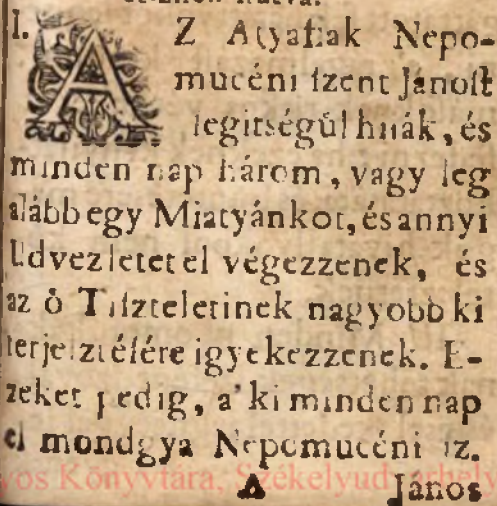 I. AZ Atyafiak Nepo-
mucéni ſzent Jánoſt
ſegitségűl hiják, és
minden nap három, vagy leg
alább egy Miatyánkot, és annyi
Udvezletet el végezzenek, és
az ő Tiſzteletinek nagyobb ki
terjeſztéſére igyekezzenek. E-
zeket pedig, a' ki minden nap
el mondgya Nepomucéni ſz.
A János
Könyvtára, Székelyud